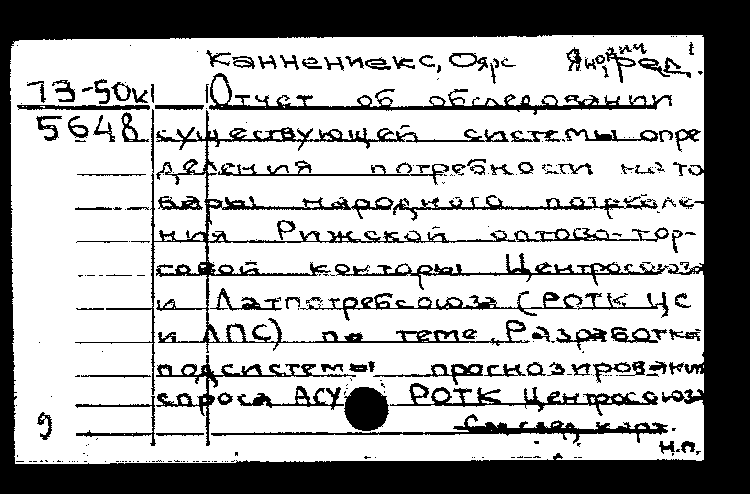 Каннениекс, Оярс Янович, ред.
73-50к Отчет об обследовании
5648 существующей системы опре
деления потребности на то
вары народного потребле-
ния Рижской оптово-тор-
говой конторы Центросоюза
и Латпотребсоюза (РОТК ЦС
и ЛПС) по теме „Разработка
подсистемы прогнозирования
спроса АСУ РОТК Центросоюза
9 См. след. карт.
н.п.